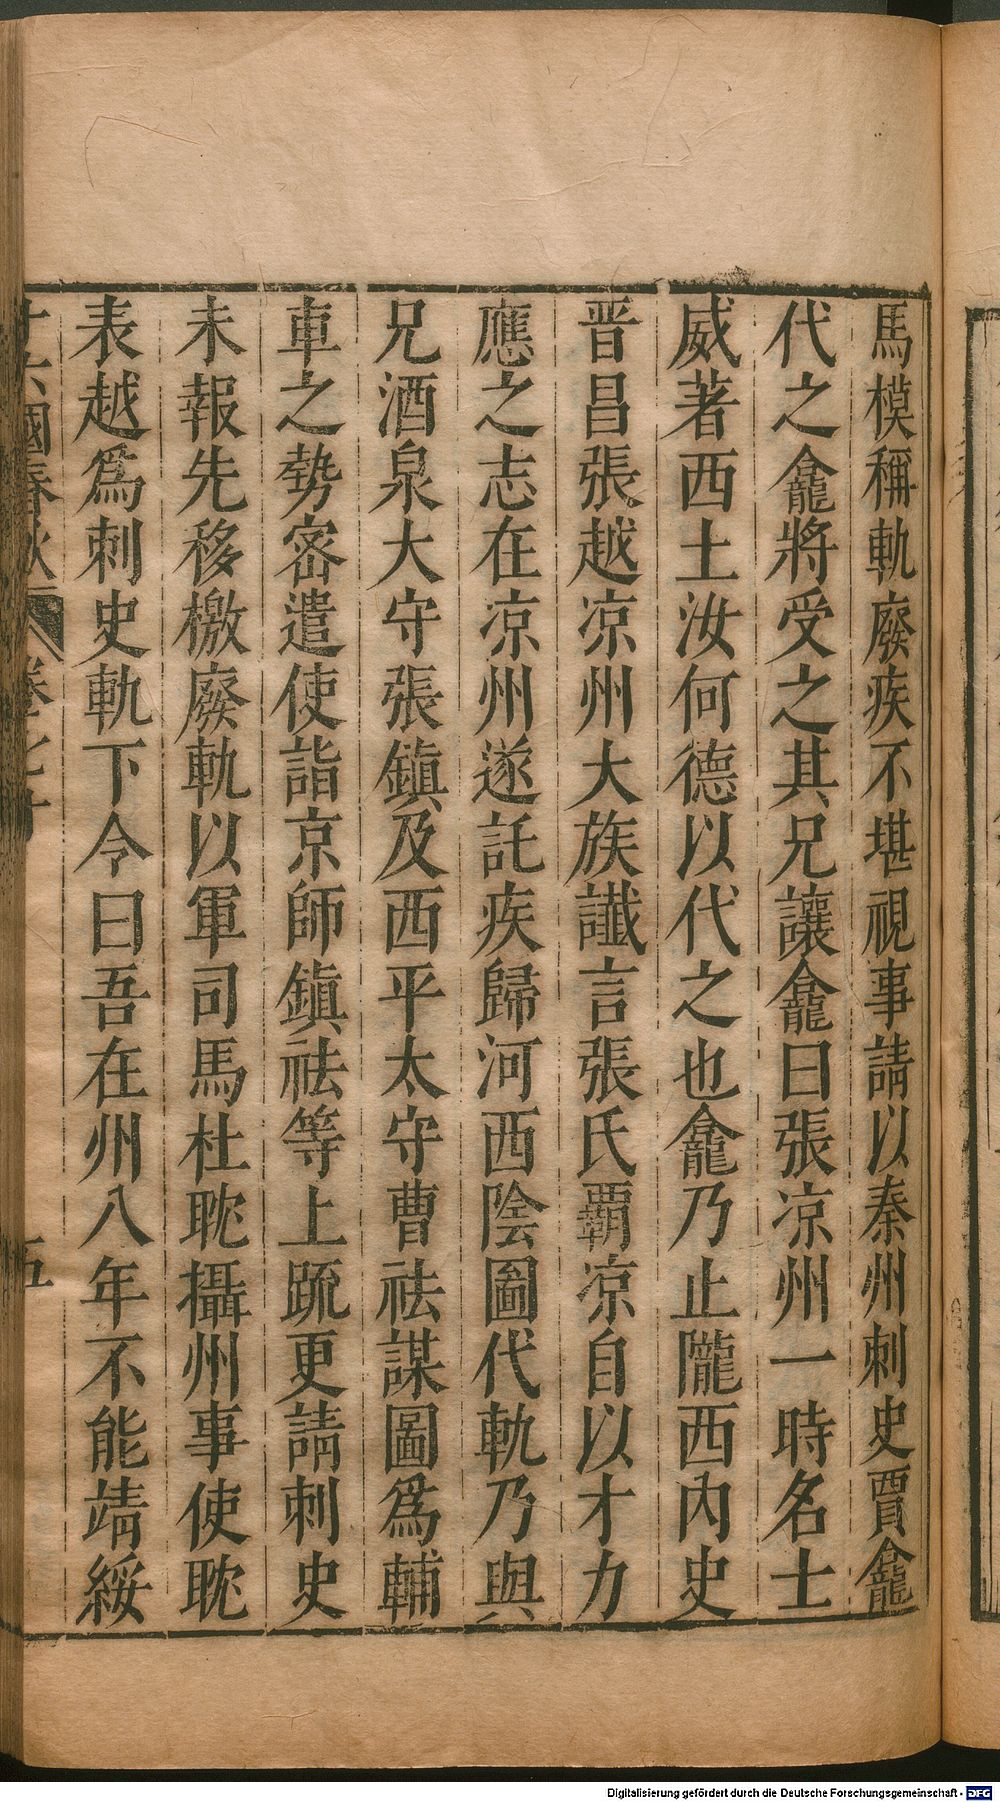 馬模稱軌廢疾不堪視事請以秦州刺史賈龕
代之龕將受之其兄讓龕曰張凉州一時名士
威著西土汝何德以代之也龕乃止隴西內史
晋昌張越凉州大族讖言張氏覇凉自以才力
應之志在凉州遂託疾歸河西陰圖代軌乃與
兄酒泉大守張鎮及西平太守曹祛謀圖爲輔
車之勢密遣使詣京師鎮祛等上䟽更請刺史
未報先移檄廢軌以軍司馬杜耽攝州事使耽
表越爲刺史軌下令曰吾在州八年不能靖綏
十六國春秋 五
Digitalisierung gefördert durch die Deutsche Forschungsgemeinschaft - DFG